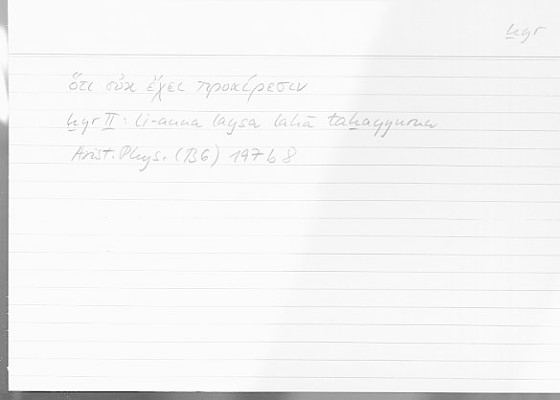 ḫyr
ὅτι οὐκ ἔχει προαίρεσιν
ḫyr II: li-anna laysa lahā taḫayyurun
Arist. Phys. (B6) 197 b 8